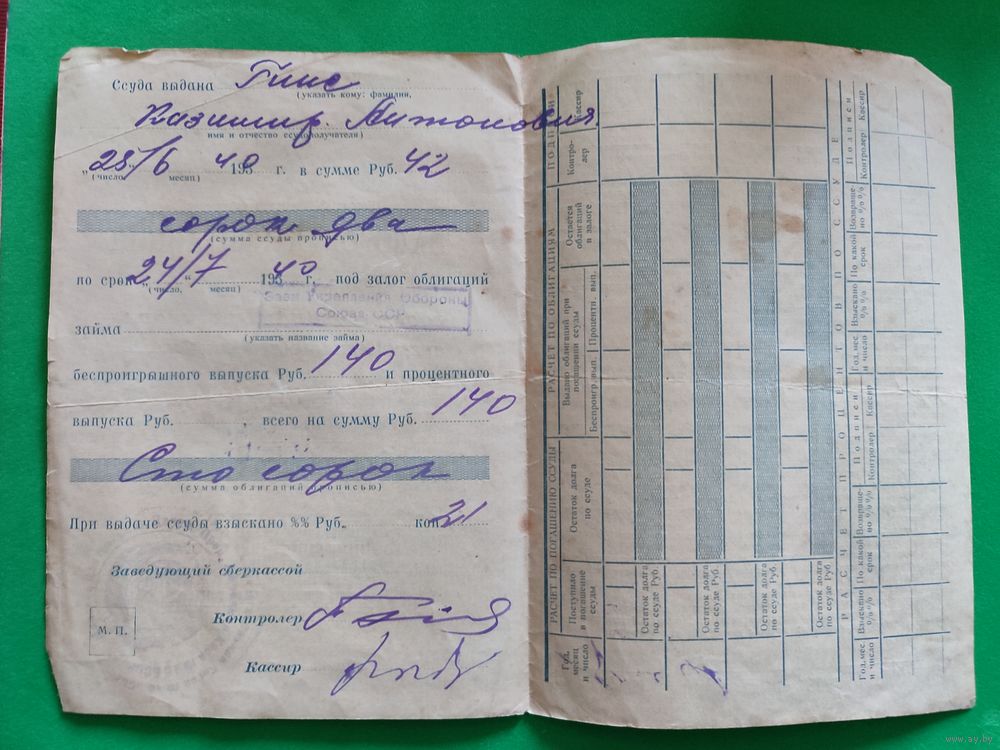 Ссуда выдана Гинс
(указать кому: фамилия,
Казимир Антонович
имя и отчество ссудополучателя)
„25/6 1940 г. в сумме Руб. 42
(число, месяц)
сорок два
(сумма ссуды прописью)
по срок „24/7“ 1940 г. под залог облигаций
(число, месяц)
Заем Укрепления Обороны
Союза ССР
займа
(указать название займа)
беспроигрышного выпуска Руб. 140 и процентного
выпуска Руб. , всего на сумму Руб. 140
Сто сорок
(сумма облигаций прописью)
При выдаче ссуды взыскано %% Руб. коп 21
Заведующий сберкассой
Контролер
Кассир
М. П.
РАСЧЕТ ПО ПОГАШЕНИЮ ССУДЫ
РАСЧЕТ ПО ОБЛИГАЦИЯМ
ПОДПИСИ
Год, месяц и число
Поступило в погашение ссуды
Остаток долга по ссуде
Выдано облигаций при погашении ссуды
Беспроигр. вып.
Процентн. вып.
Остается облигаций в залоге
Контролер
Кассир
Остаток долга по ссуде Руб.
Остаток долга по ссуде Руб.
Остаток долга по ссуде Руб.
Остаток долга по ссуде Руб.
РАСЧЕТ ПРОЦЕНТОВ ПО ССУДЕ
Год, мес. и число
Взыскано %%
По какой срок
Возвращено %%
Подписи
Контролер
Кассир
Год, мес. и число
Взыскано %%
По какой срок
Возвращено %%
Подписи
Контролер
Кассир
www.ay.by